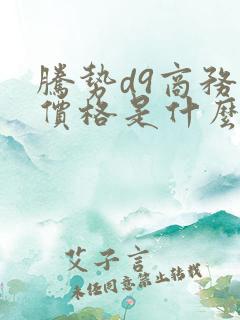 騰勢d9商務
價格是什麼
艾子言
未經同意禁止轉載